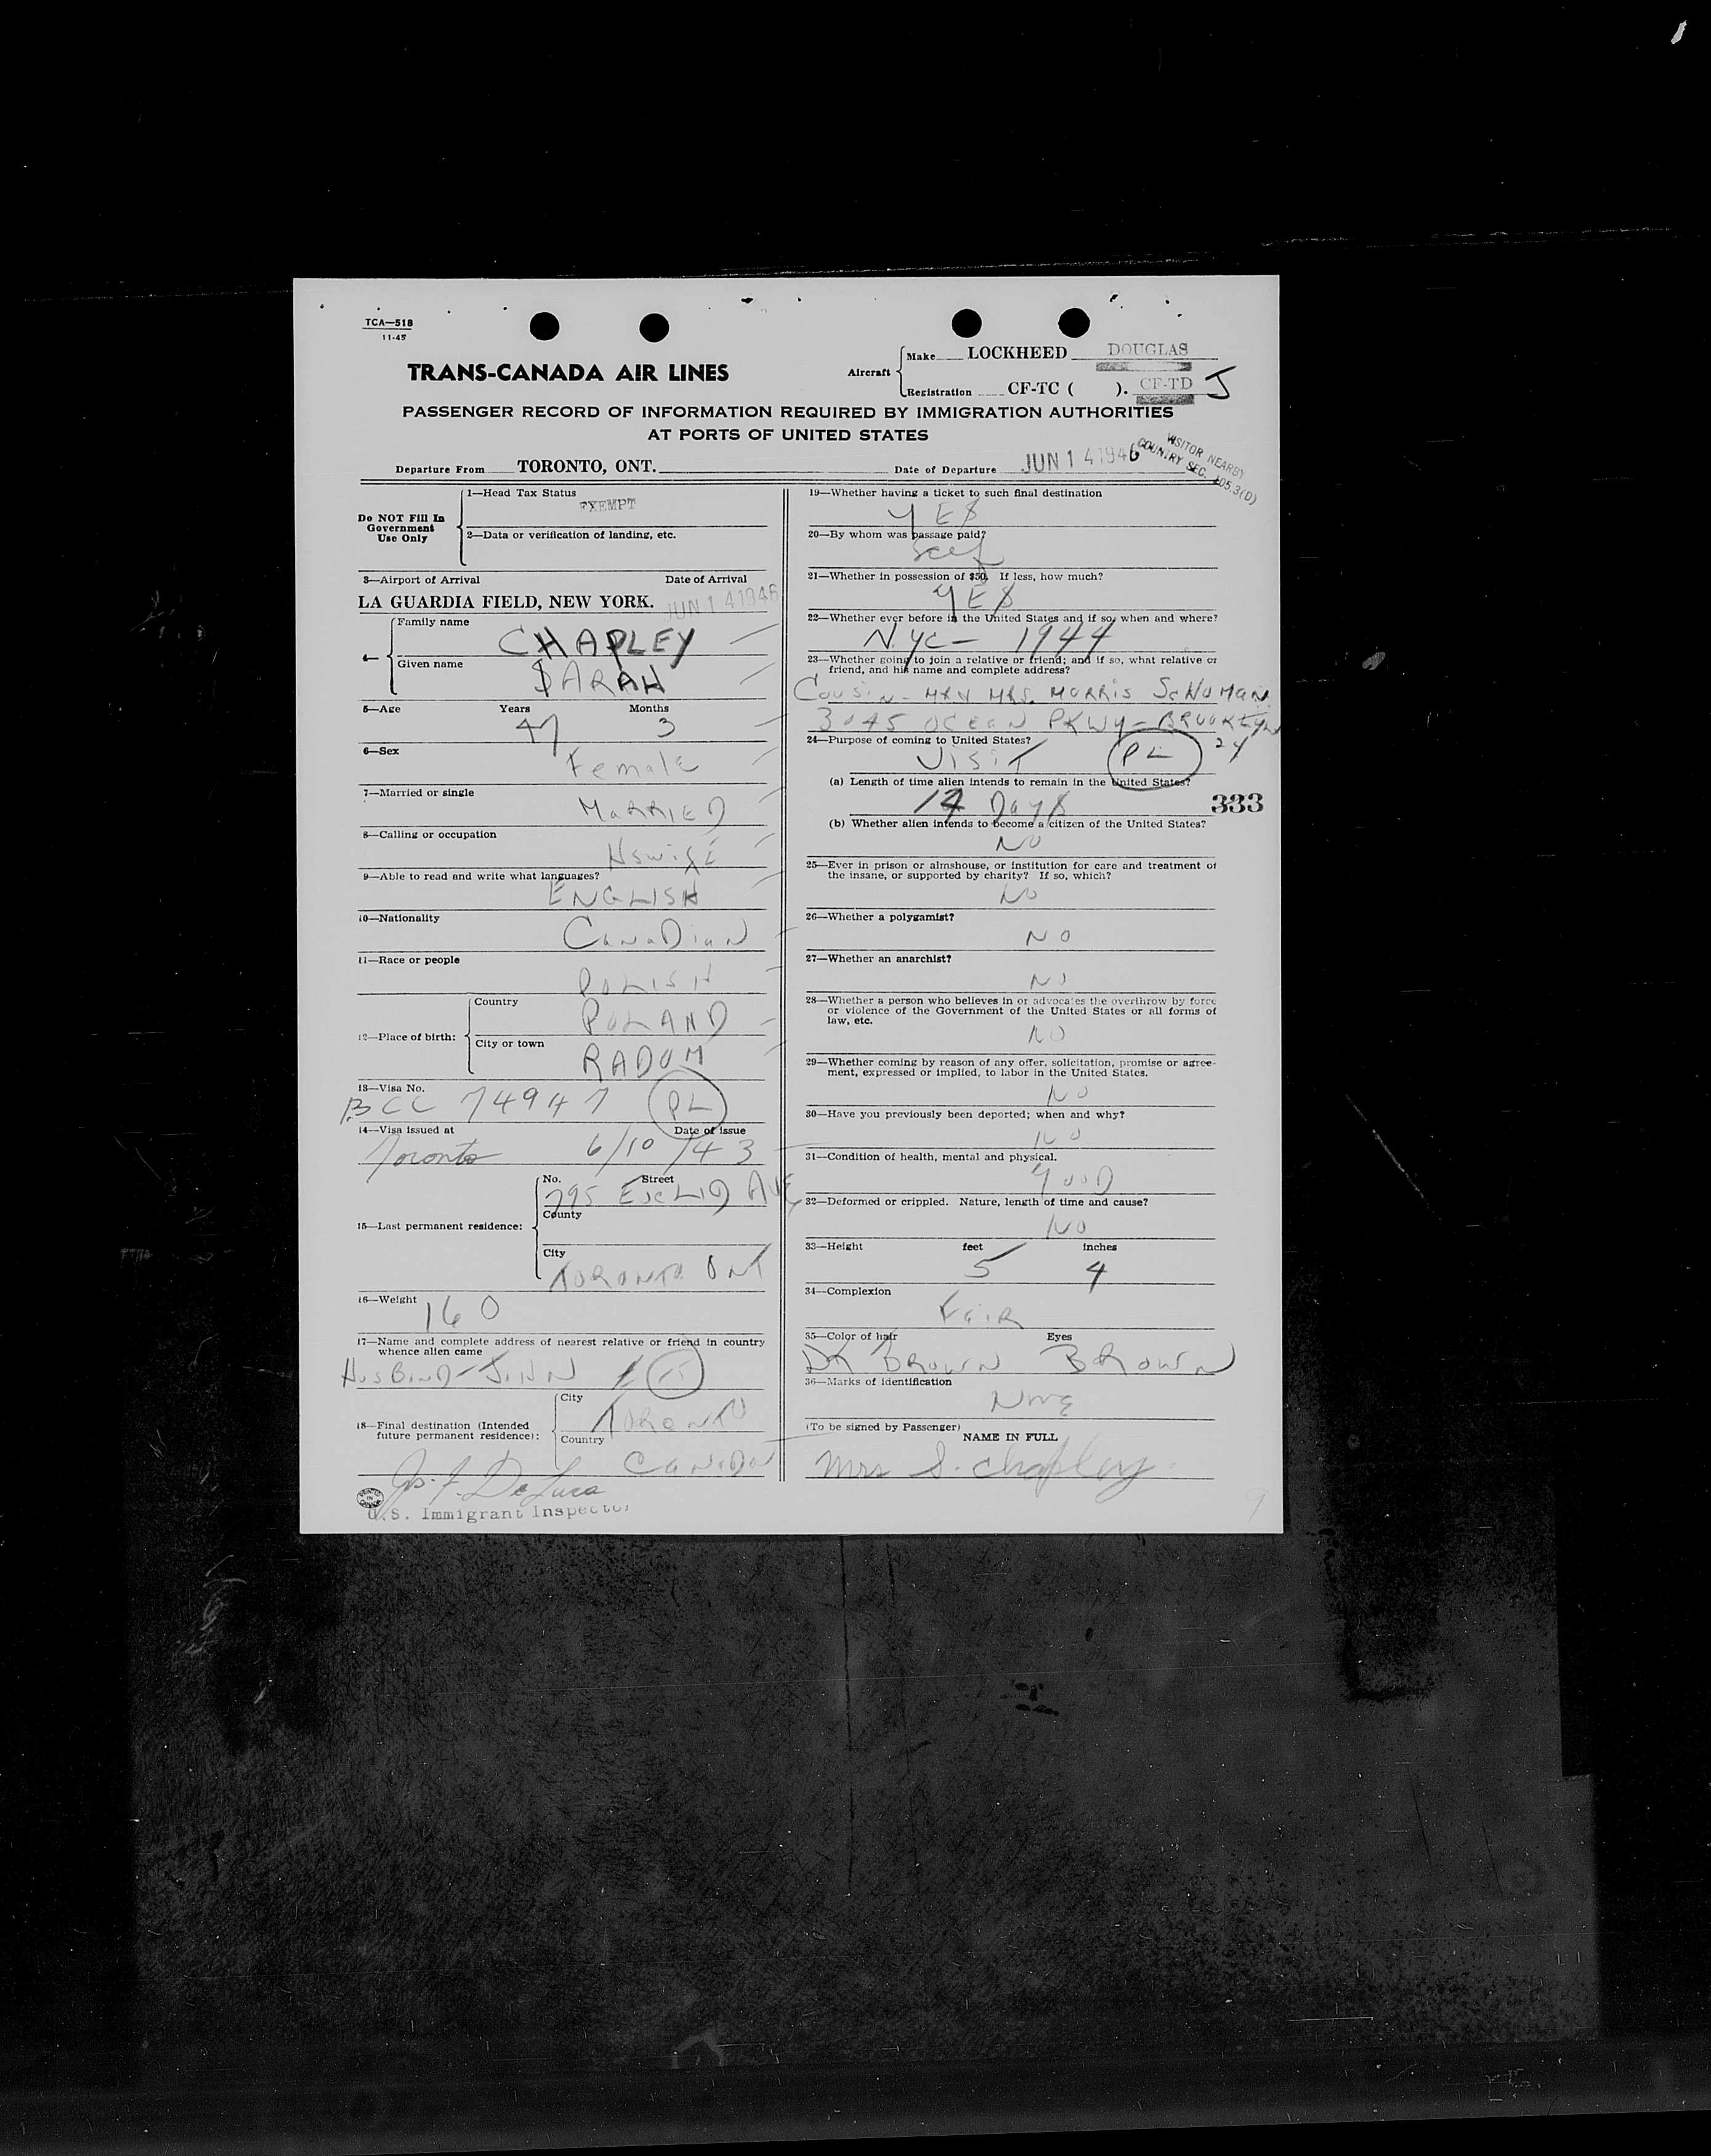 TCA—518
11-45
TRANS-CANADA AIR LINES
Aircraft
Make LOCKHEED DOUGLAS
Registration CF-TC ( ). CF-TD J
PASSENGER RECORD OF INFORMATION REQUIRED BY IMMIGRATION AUTHORITIES
AT PORTS OF UNITED STATES
VISITOR NEARBY
COUNTRY SEC. 105.3(D)
Departure From TORONTO, ONT. Date of Departure JUN 14 1946
Do NOT Fill In
Government
Use Only
1—Head Tax Status
EXEMPT
2—Data or verification of landing, etc.
3—Airport of Arrival Date of Arrival
LA GUARDIA FIELD, NEW YORK. JUN 14 1946
4—
Family name
CHAPLEY
Given name
SARAH
5—Age Years Months
47 3
6—Sex
Female
7—Married or single
MARRIED
8—Calling or occupation
Hswife
9—Able to read and write what languages?
ENGLISH
10—Nationality
CanaDian
11—Race or people
POLISH
12—Place of birth:
Country
POLAND
City or town
RADOM
13—Visa No.
BCC 74947 PL
14—Visa issued at Date of issue
Toronto 6/10/43
15—Last permanent residence:
No. Street
795 EUCLID AVE
County
City
TORONTO ONT
16—Weight
160
17—Name and complete address of nearest relative or friend in country
whence alien came
HUSBAND-JOHN
18—Final destination (Intended
future permanent residence):
City
TORONTO
Country
CANADA
Jos. F. De Luca
U.S. Immigrant Inspector
19—Whether having a ticket to such final destination
YES
20—By whom was passage paid?
Self
21—Whether in possession of $50. If less, how much?
YES
22—Whether ever before in the United States and if so, when and where?
NYC - 1944
23—Whether going to join a relative or friend; and if so, what relative or
friend, and his name and complete address?
COUSIN - MR & MRS. MORRIS SCHUMAN
3045 OCEAN PKWY - BROOKLYN
24
24—Purpose of coming to United States?
VISIT PL
(a) Length of time alien intends to remain in the United States?
14 Days 333
(b) Whether alien intends to become a citizen of the United States?
NO
25—Ever in prison or almshouse, or institution for care and treatment of
the insane, or supported by charity? If so, which?
NO
26—Whether a polygamist?
NO
27—Whether an anarchist?
NO
28—Whether a person who believes in or advocates the overthrow by force
or violence of the Government of the United States or all forms of
law, etc.
NO
29—Whether coming by reason of any offer, solicitation, promise or agree-
ment, expressed or implied, to labor in the United States.
NO
30—Have you previously been deported; when and why?
NO
31—Condition of health, mental and physical.
GOOD
32—Deformed or crippled. Nature, length of time and cause?
NO
33—Height feet inches
5 4
34—Complexion
FAIR
35—Color of hair Eyes
DK BROWN BROWN
36—Marks of identification
NONE
(To be signed by Passenger)
NAME IN FULL
Mrs S. Chapley
9